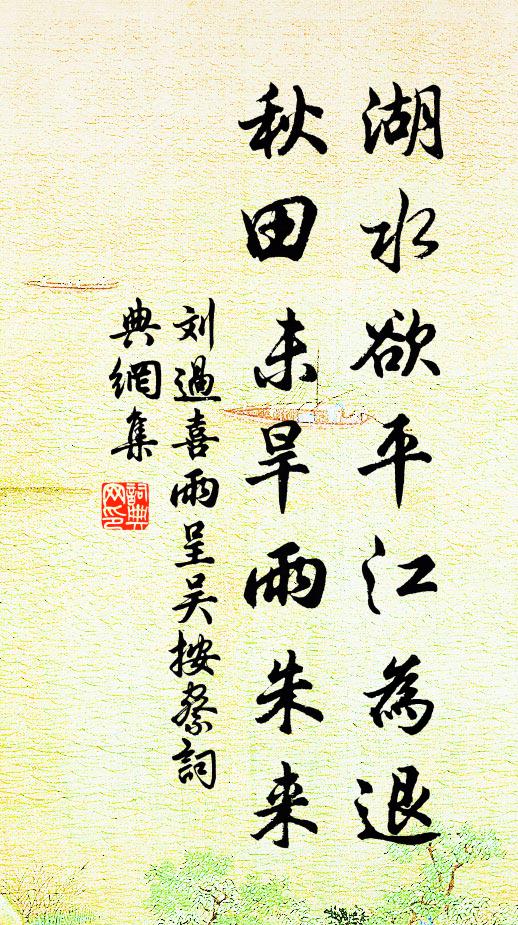 湖水欲平江為退
秋田未旱雨朱来
刘過喜雨呈吴按察詞
典網集
詞典
网印